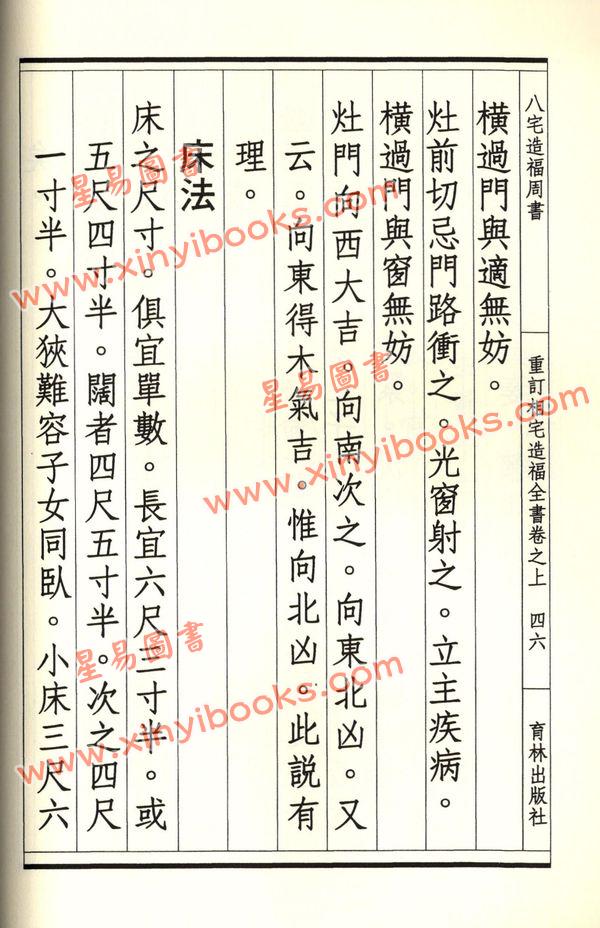 八宅造福周書
重訂相宅造福全書卷之上 四六
育林出版社
橫過門與適無妨。
灶前切忌門路衝之。光窗射之。立主疾病。
橫過門與窗無妨。
灶門向西大吉。向南次之。向東北凶。又
云。向東得木氣吉。惟向北凶。此説有
理。
床法
床之尺寸。俱宜單數。長宜六尺三寸半。或
五尺四寸半。闊者四尺五寸半。次之四尺
一寸半。大狹難容子女同臥。小床三尺六
星易圖書
www.xinyibooks.com
星易圖書
www.xinyibooks.com
星易圖書
www.xinyibooks.com